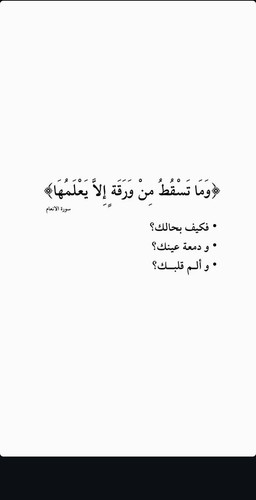 ﴿وَمَا تَسْقُطُ مِنْ وَرَقَةٍ إِلاَّ يَعْلَمُهَا﴾
سورة الانعام
• فكيف بحالك؟
• و دمعة عينك؟
• و ألــم قلبــك؟